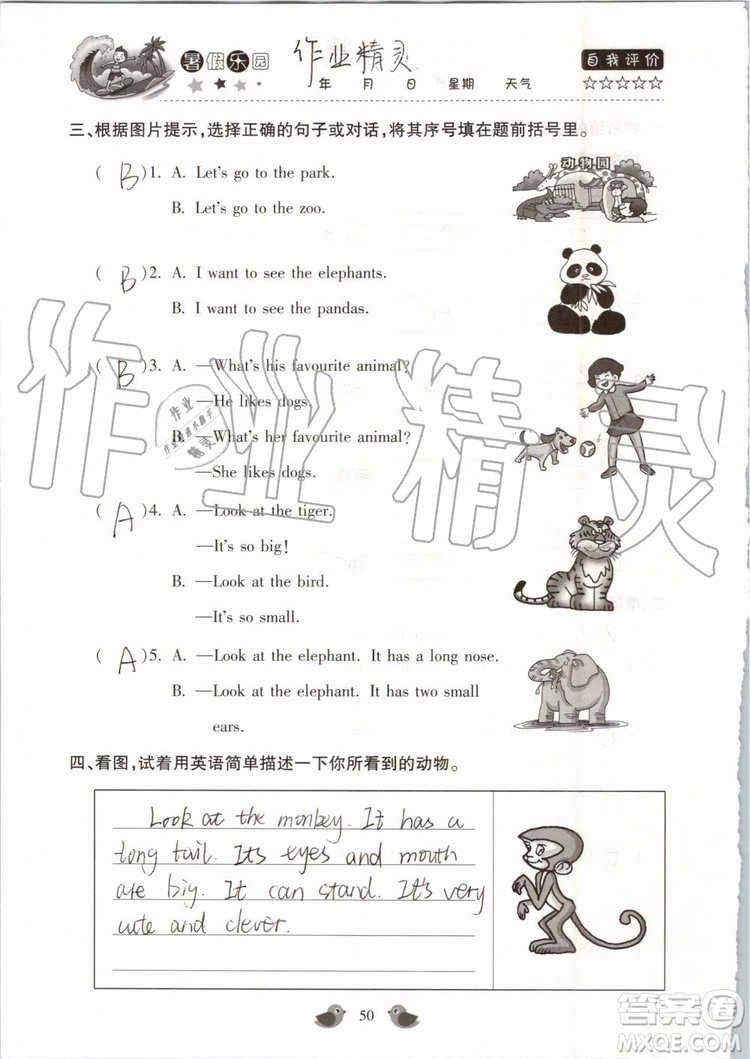 暑假乐园
作业精灵
年 月 日 星期 天气
自我评价
☆☆☆☆☆
三、根据图片提示,选择正确的句子或对话,将其序号填在题前括号里。
( B )1. A. Let's go to the park.
B. Let's go to the zoo.
动物园
( B )2. A. I want to see the elephants.
B. I want to see the pandas.
( B )3. A. —What's his favourite animal?
—He likes dogs.
B. —What's her favourite animal?
—She likes dogs.
( A )4. A. —Look at the tiger.
—It's so big!
B. —Look at the bird.
—It's so small.
( A )5. A. —Look at the elephant. It has a long nose.
B. —Look at the elephant. It has two small
ears.
四、看图,试着用英语简单描述一下你所看到的动物。
Look at the monkey. It has a
long tail. It's eyes and mouth
are big. It can stand. It's very
cute and clever.
50
作业精灵
作业
精灵
答案圈
MXQE.COM